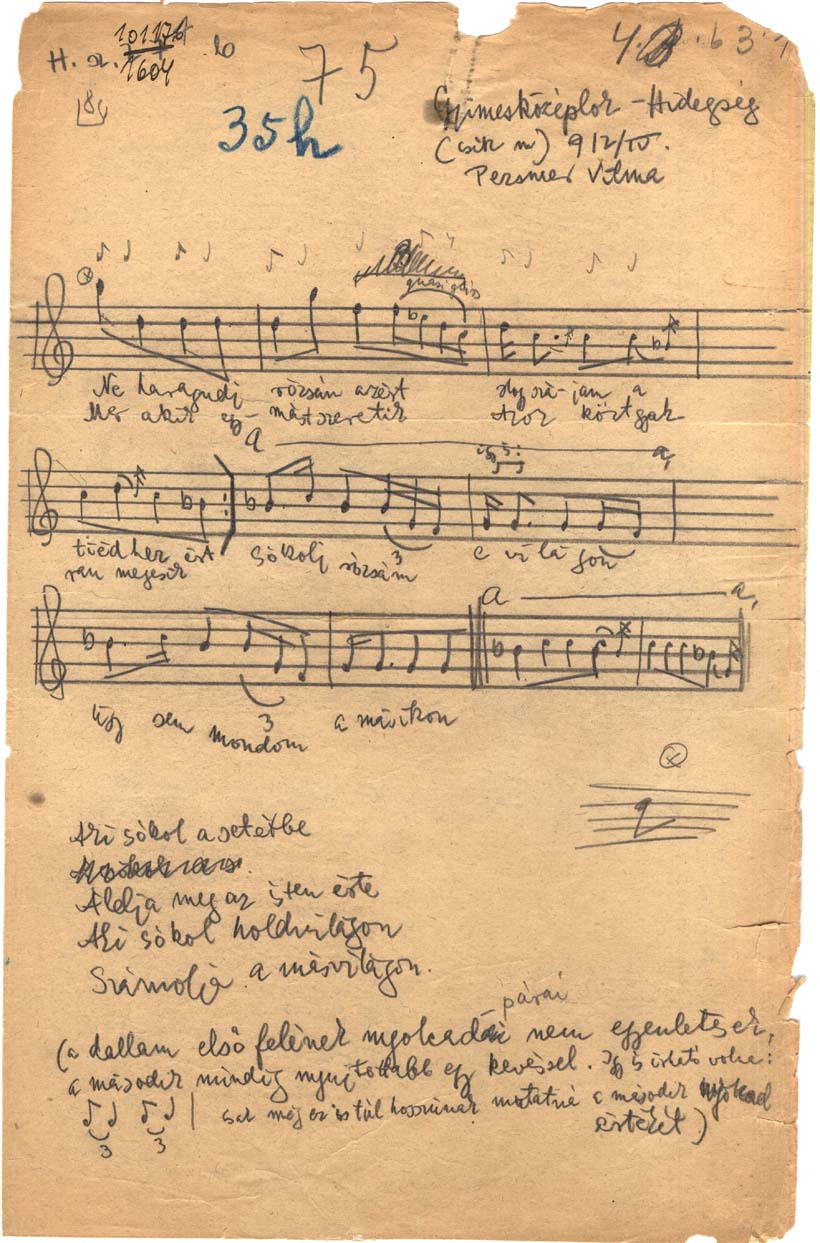 H. a. 10117b
1604
b
75
35h
Gyimesközéplok-Hidegség
(Csík m) 912/IV.
Persnyes Vilma
quasi gliss
Ne haragudj rózsám azért
Hogy szá-jan a
Mer akik egy-mást szeretik
Azok köztgyak
a
a,
tiédhez ért
ran megesik
3
Sókolj rózsám e világon
3
a
a,
Úgy sem mondom a másikon
3
Aki sókol a setétbe
Áldja meg az isten érte
Aki sókol holdvilágon
Számolja a másvilágon.
párai
(a dallam első felének nyolcad nem egyenletesek,
a második mindig nyujtottabb egy kevéssel. Így is írható volna:
3 3 csak még ez is túl hosszúnak mutatná a második nyolcad
értékét)